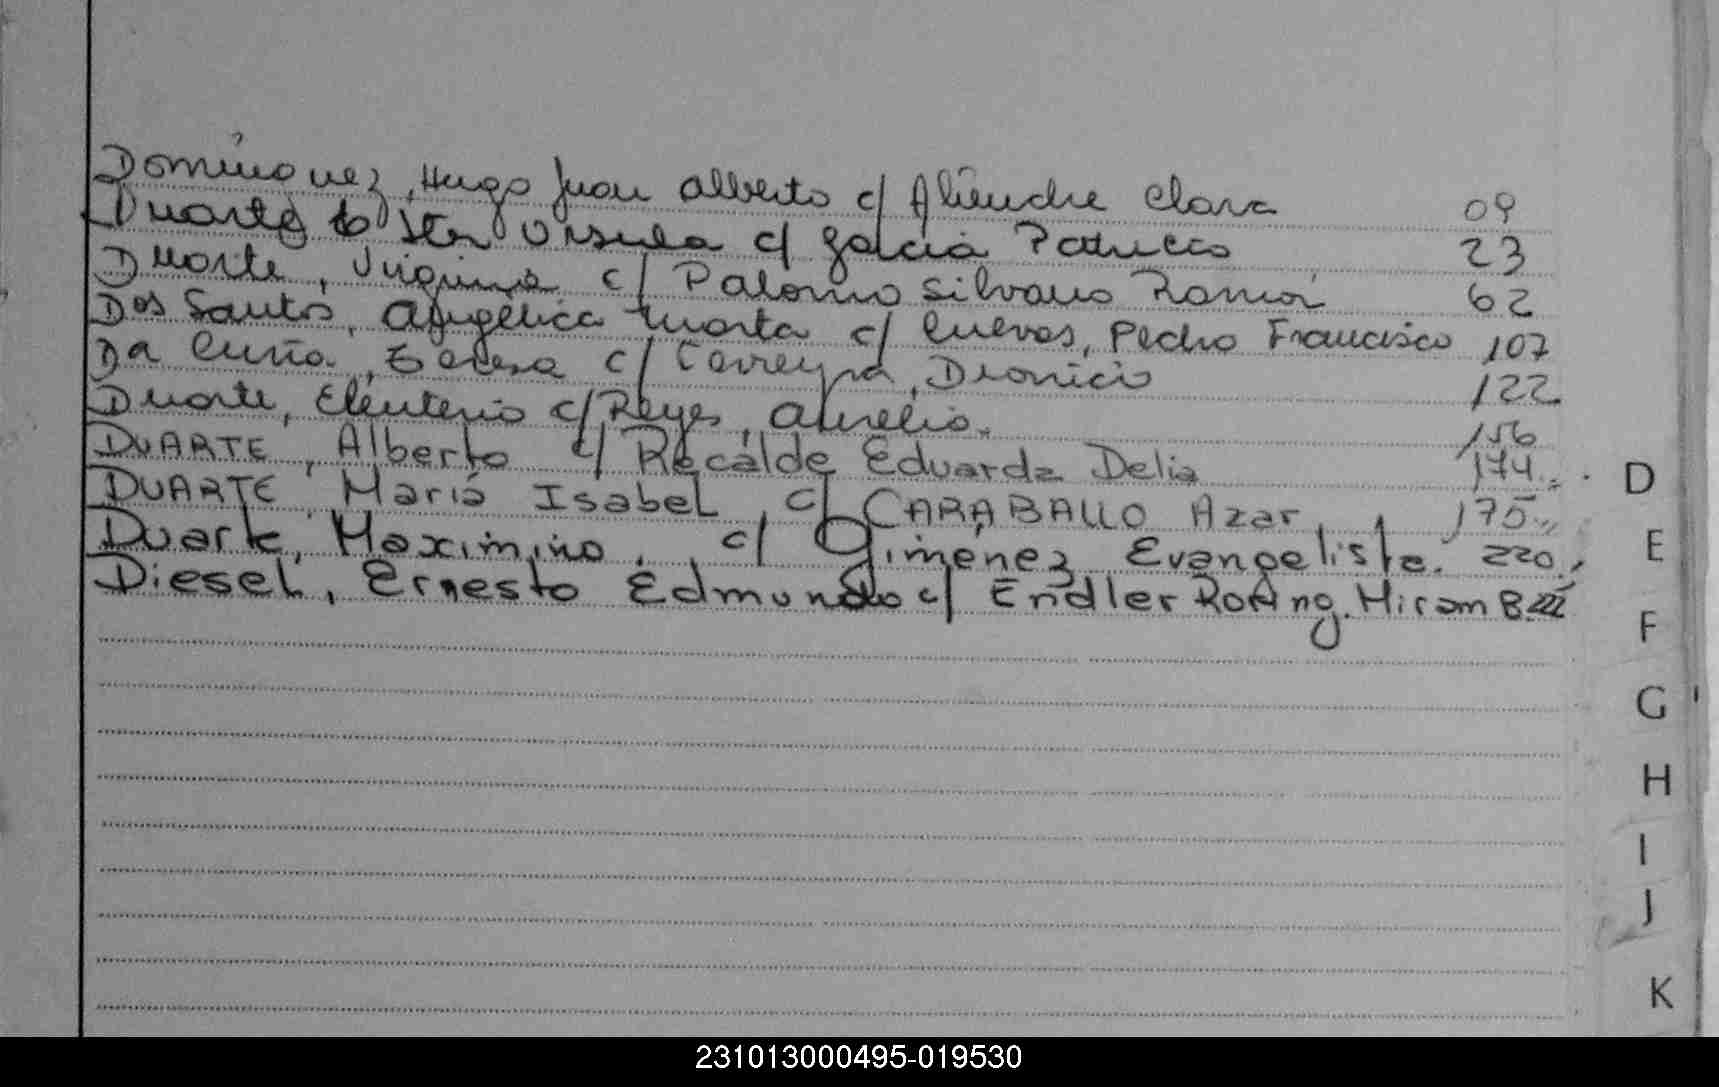 Dominguez, Hugo Juan Alberto c/ Aliendre Clara 09
Duarte Ursula c/ Galcia Patricio 23
Duarte, Virginia c/ Palomo Silvano Ramón 62
Dos Santos, Angélica Marta c/ Cuevas, Pedro Francisco 107
Da Cuña, Teresa c/ Dionicio 122
Duarte, Eleuterio c/ Reyes, Aurelia. 156
DUARTE, Alberto c/ Recalde Eduarda Delia 174
DUARTE María Isabel c/ CARABALLO Azar, 175
Duarte, Maximino, c/ Gimenez Evangelista. 220
Diesel, Ernesto Edmundo c/ Endler Miriam B.
D
E
F
G
H
I
J
K
231013000495-019530